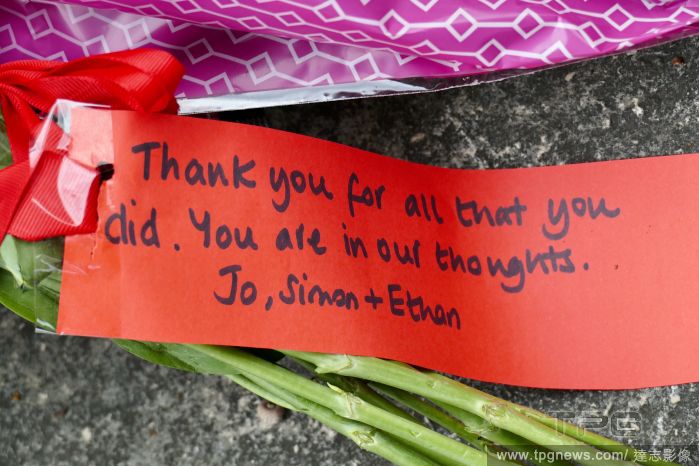 Thank you for all that you
did. You are in our thoughts.
Jo, Simon + Ethan
TPG
www.tpgnews.com/ 達志影像